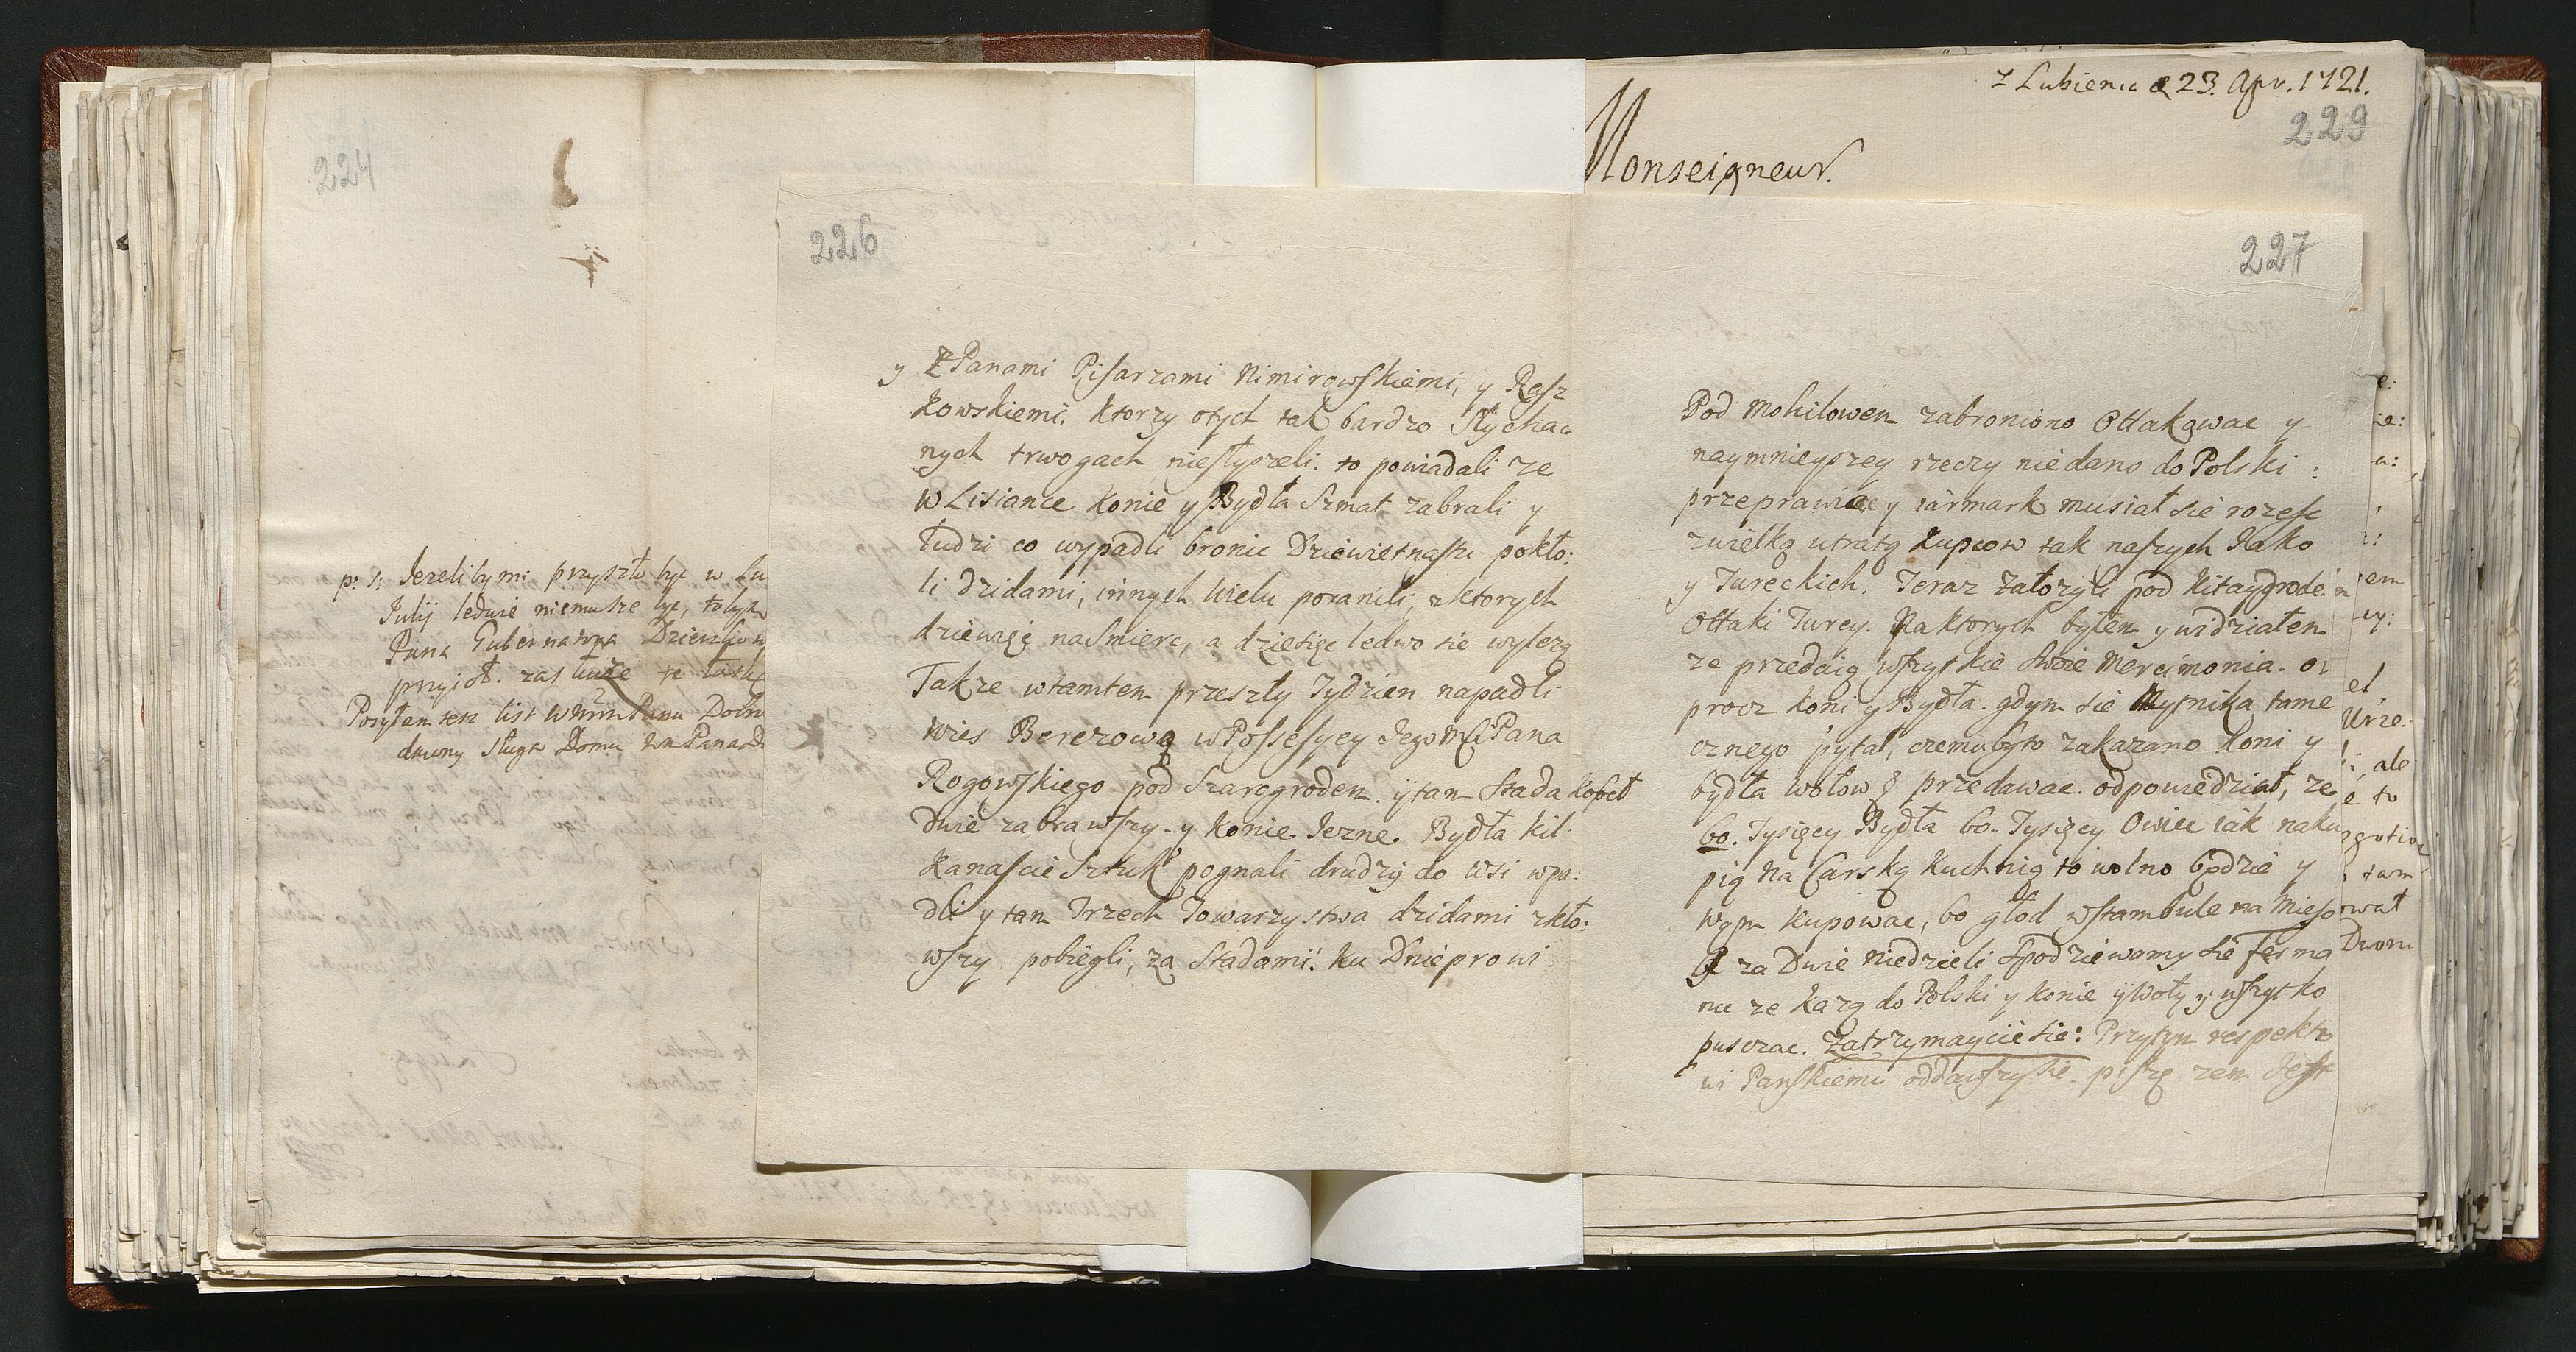 224
p: s: Jezeliby mi przyszło być w Lu
Julij ledwie niemusze być, to byz
Pana Gubernatora
przyioł. zasłuże te łaskę
Posyłam tesz list Pana Dobr
dawny sługa Domu Pana D
226
y Z Panami Pisarzami Nimirowskiemi, y Rasz
kowskiemi. ktorzy otych tak bardzo słychac
nych trwogach niesłyszeli. to powiadali ze
w Lisiance konie y Bydła szmat zabrali y
ludzi co wypadli bronic Dziewietnascie pokło:
li dzidami, innych wielu poranili, z ktorych
dziewięc na Smierc, a dziesięc ledwo sie wylezą
Takze w tamten przeszły Tydzien napadli
wies Berezową w Possessyey Jego Msci Pana
Rogowskiego pod Szarogrodem. y tam Stada kobeł
Dwie zabrawszy - y konie Jezne. Bydła kil:
kanascie Sztuk pognali drudzy do wsi wpa:
dli y tam Trzech Towarzystwa dzidami zkło:
wszy pobiegli, za Stadami. ku Dnieprowi.
z Lubienia d 23. Apr. 1721.
229
Monseigneur.
227
Pod Mohilowem zabroniono Ottakowac y
naymnieyszey rzeczy niedano do Polski:
przeprawiac y iarmark musiał sie rozesc
z wielką utratą kupcow tak naszych Jako
y Tureckich. Teraz załozyli pod Kitaygrodem
Ottaki Turcy. Na ktorych byłem y widziałem
ze przedaią wszystkie swoie Mercimonia. o
procz koni y Bydła. gdym sie Mytnika tame
cznego pytał, czemu by to zakazano koni y
bydła wołow przedawac. odpowiedział, ze
60. Tysięcy Bydła 60. Tysięcy Owiec iak naku
pią na Carską kuchnią to wolno będzie y
wam kupowac, bo głod w Stambule na Mieso
A za Dwie niedzieli Spodziewamy sie Ferma
nu ze kazą do Polski y konie y Woły y wszystko
puszczac. Zatrzymaycie sie: Przytym respekto
wi Panskiemu oddawszy sie. piszę zem Jest
e:
ie:
a:
em
ey:
el
Urze:
i, ale
e to
tam
wał
Dwom